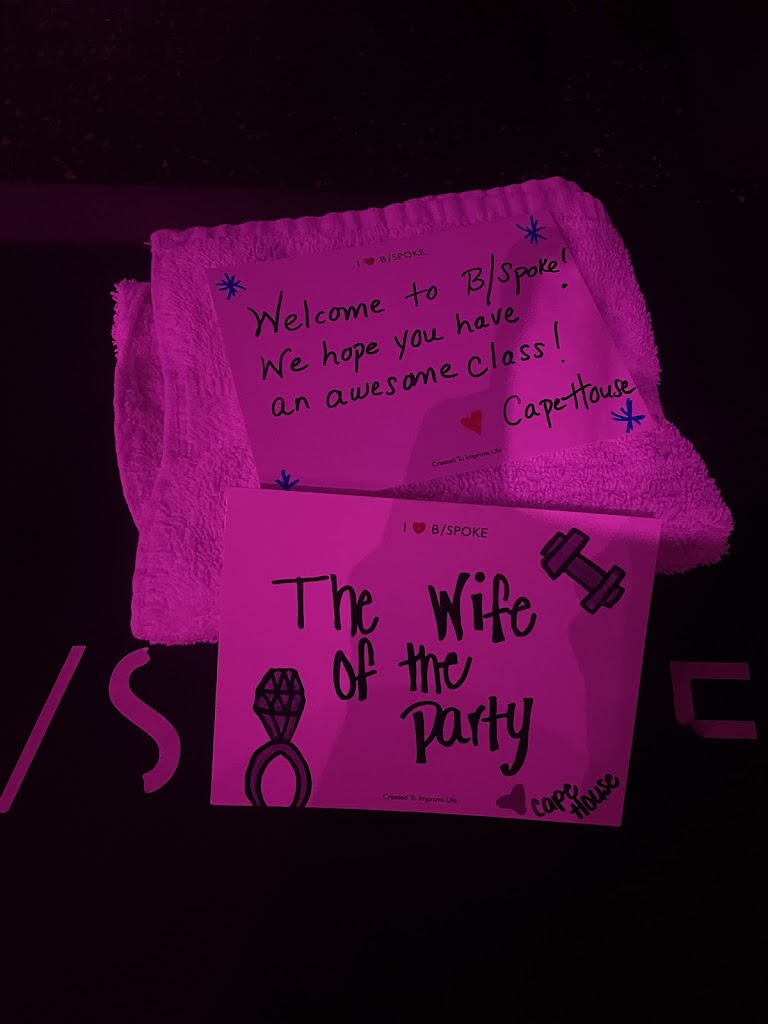 I ❤ B/SPOKE
Welcome to B/Spoke!
We hope you have
an awesome class!
❤ CapeHouse
Created To Improve Life
I ❤ B/SPOKE
The Wife
of the
party
Created To Improve Life
cape
House
/S